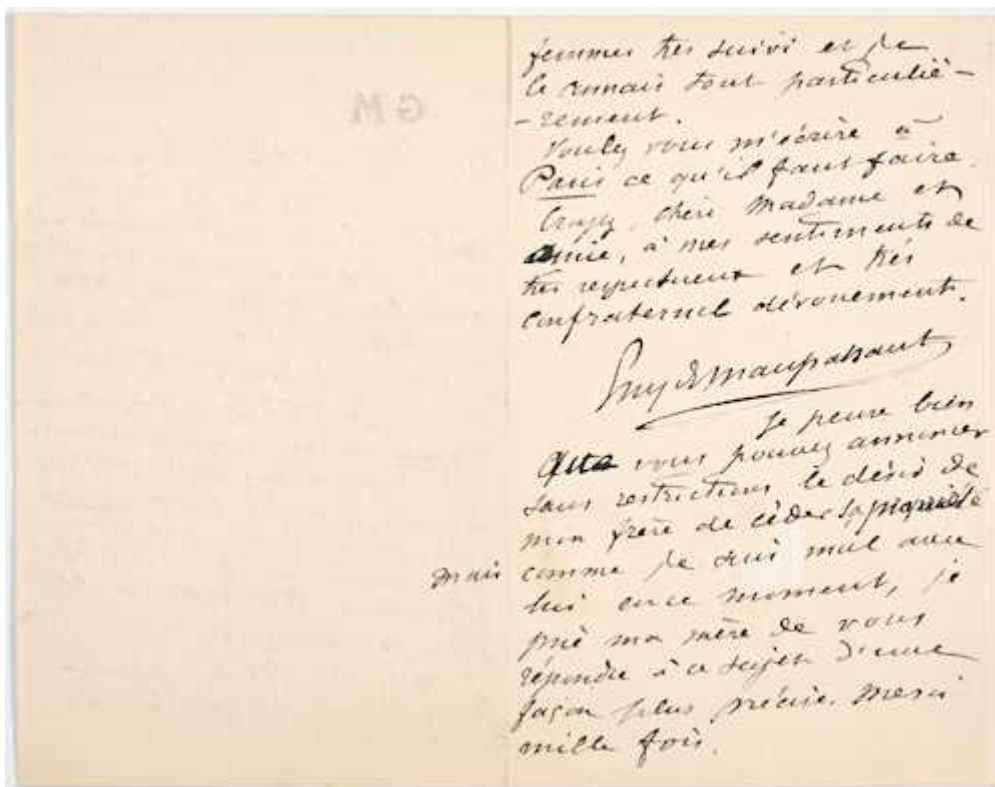 GM
femmes très suivi et je
le connais tout particuliè-
-rement.
Voulez vous m'écrire à
Paris ce qu'il faut faire.
Croyez, chère Madame et
amie, à mes sentiments de
très respectueux et très
confraternel dévouement.
Guy de Maupassant
Je pense bien
que vous pouvez annoncer
sans restrictions le désir de
mon frère de céder sa propriété
mais comme je suis mal avec
lui en ce moment, je
prie ma mère de vous
répondre à ce sujet d'une
façon plus précise. Merci
mille fois.